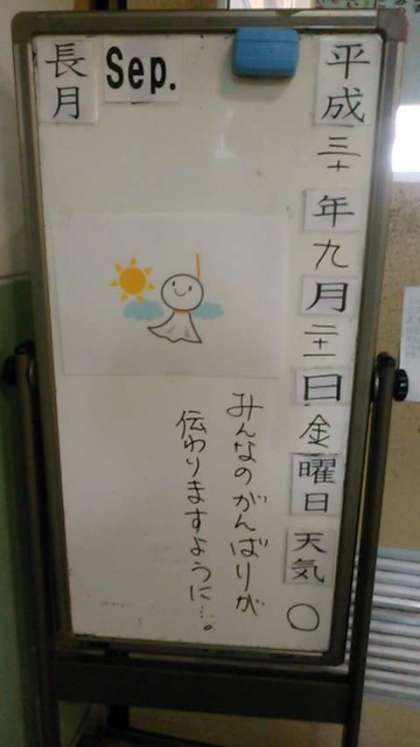 平成三十年九月二十一日金曜日天気〇
みんなのがんばりが
伝わりますように…。
Sep.
長月